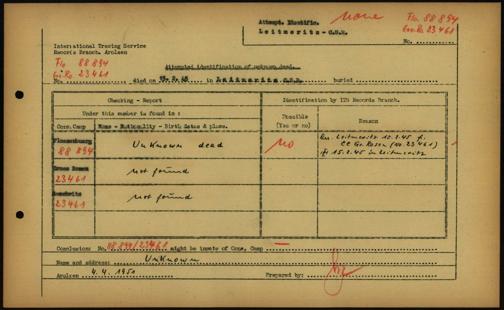 Attempt. Identific. none Flo. 88 894
Leitmeritz - C.S.R. Gro.Ro. 23461
No.
International Tracing Service
Records Branch. Arolsen
Flo. 88 894
Gro.Ro. 23461
Attempted identification of unknown dead.
No. died on 15.2.45 in Leitmeritz C.S.R. buried
Checking - Report Identification by ITS Records Branch.
Under this number is found in:
Conc.Camp Name - Nationality - Birth dates & place. Possible (Yes or no) Reason
Flossenbuerg 88 894 Unknown dead no
Leitmeritz 15.2.45 f.
CC Gr.Rosen (No. 23461)
15.2.45 in Leitmeritz
Gross Rosen 23461 not found
23461 not found
Conclusion: No. 88 894/23461 might be inmate of Conc. Camp —
Name and address: Unknown
Arolsen 4.4.1951 Prepared by: